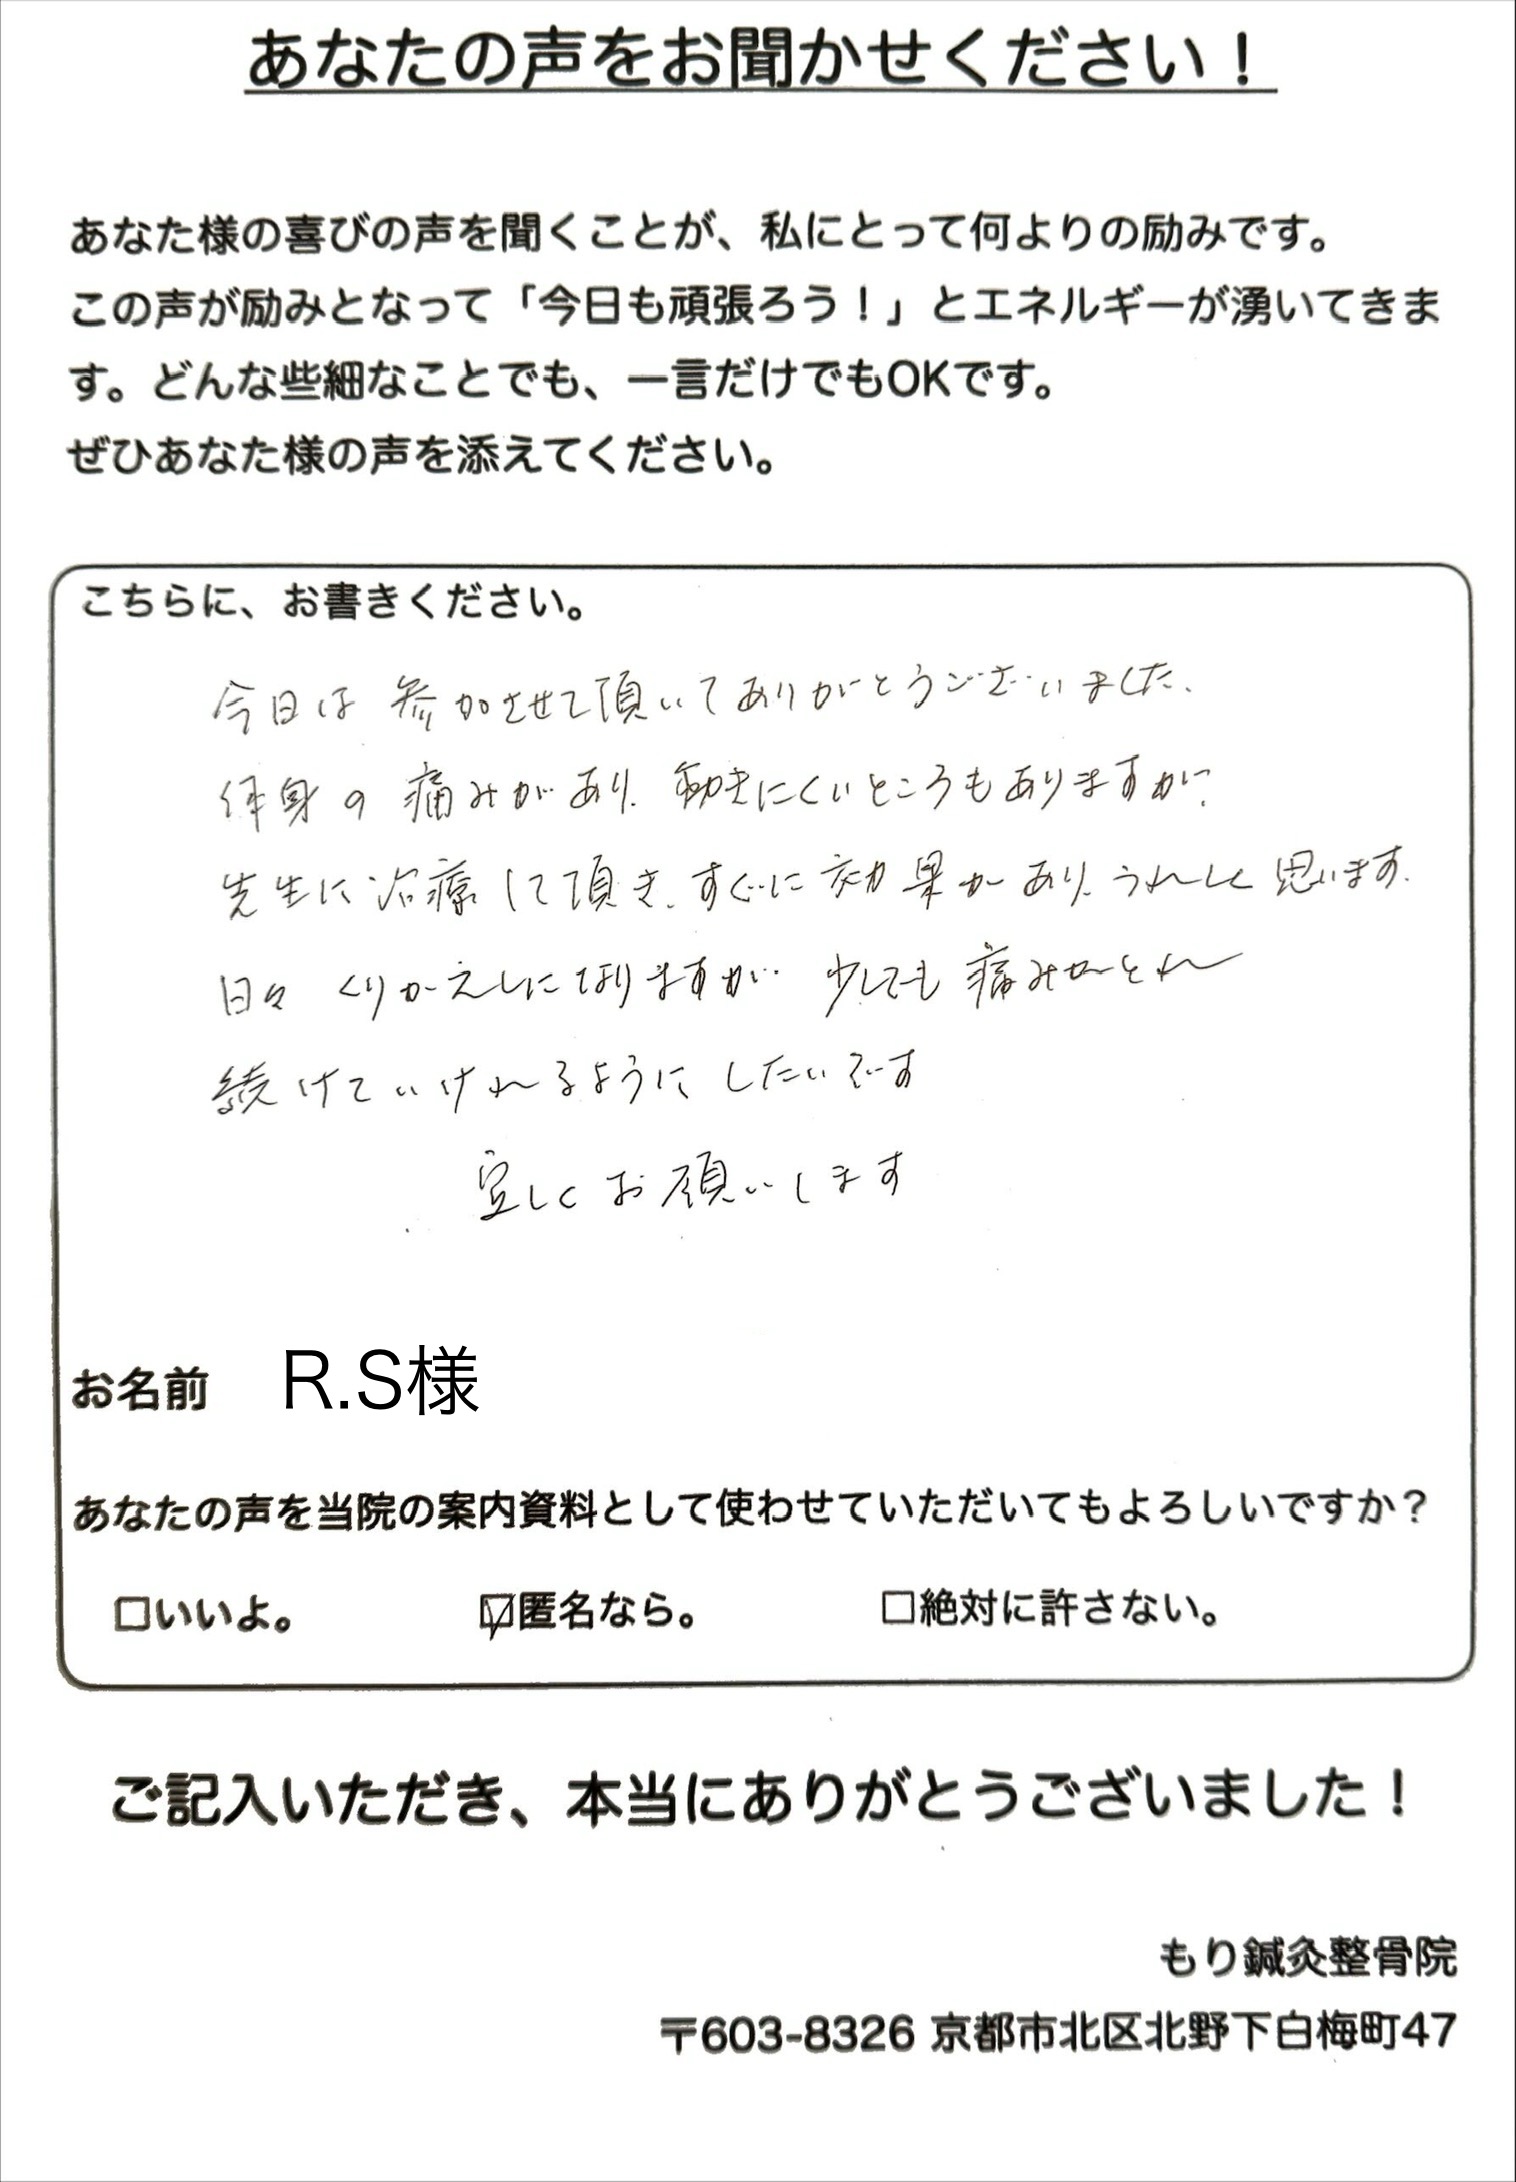 あなたの声をお聞かせください！
あなた様の喜びの声を聞くことが、私にとって何よりの励みです。
この声が励みとなって「今日も頑張ろう！」とエネルギーが湧いてきま
す。どんな些細なことでも、一言だけでもOKです。
ぜひあなた様の声を添えてください。
こちらに、お書きください。
今日は参加させて頂いてありがとうございました。
体身の痛みがあり、動きにくいところもありますが、
先生に治療して頂き、すぐに効果があり、うれしく思います。
日々くりかえしになりますが 少しでも痛みがとれ
続けていけれるようにしたいです
宜しくお願いします
お名前 R.S様
あなたの声を当院の案内資料として使わせていただいてもよろしいですか？
□いいよ。 ☑匿名なら。 □絶対に許さない。
ご記入いただき、本当にありがとうございました！
もり鍼灸整骨院
〒603-8326 京都市北区北野下白梅町47